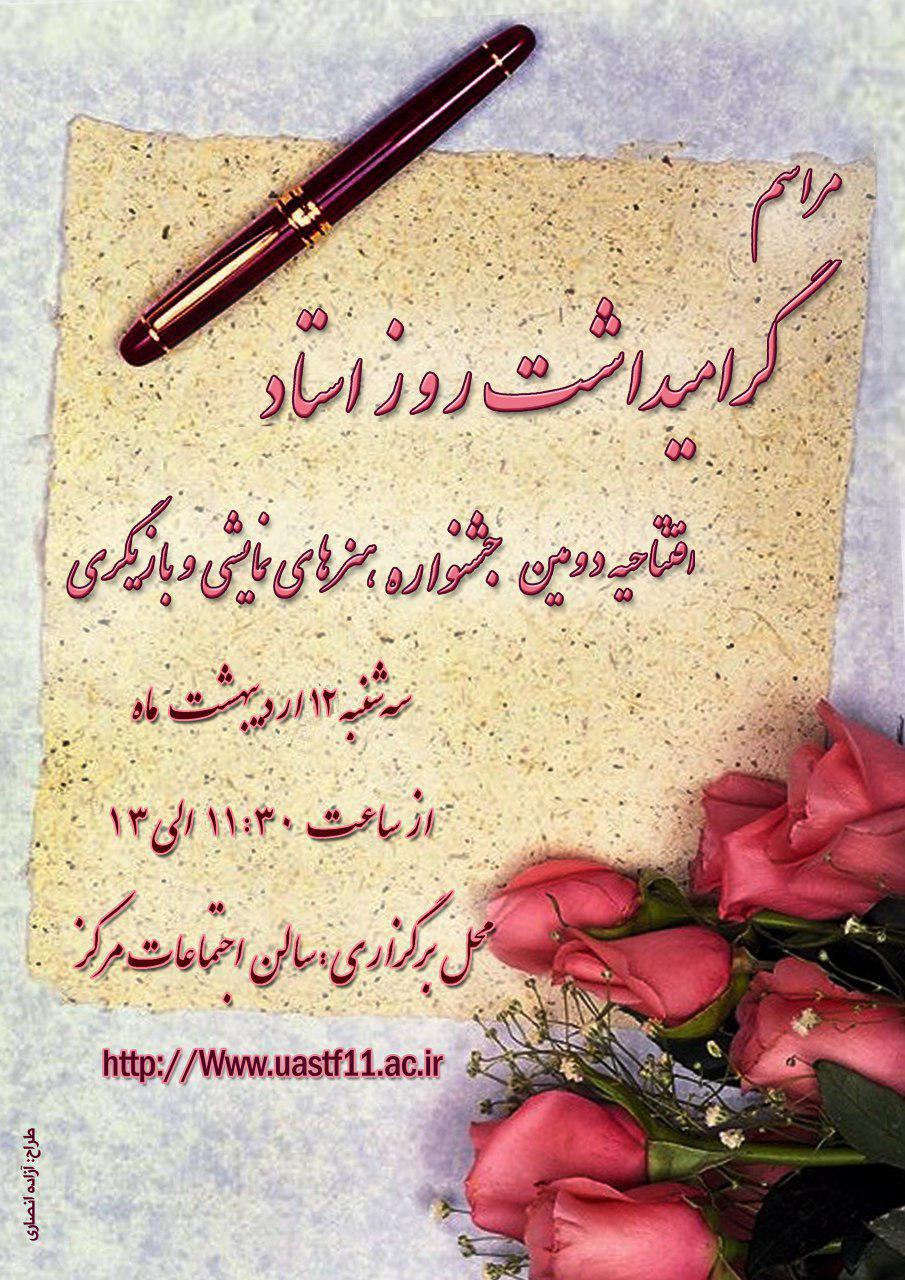 مراسم
گرامیداشت روز استاد
افتتاحیه دومین جشنواره هنرهای نمایشی و بازیگری
سه شنبه ۱۲ اردیبهشت ماه
از ساعت ۱۱:۳۰ الی ۱۳
محل برگزاری: سالن اجتماعات مرکز
http://Www.uastf11.ac.ir
طراح: آزاده انصاری